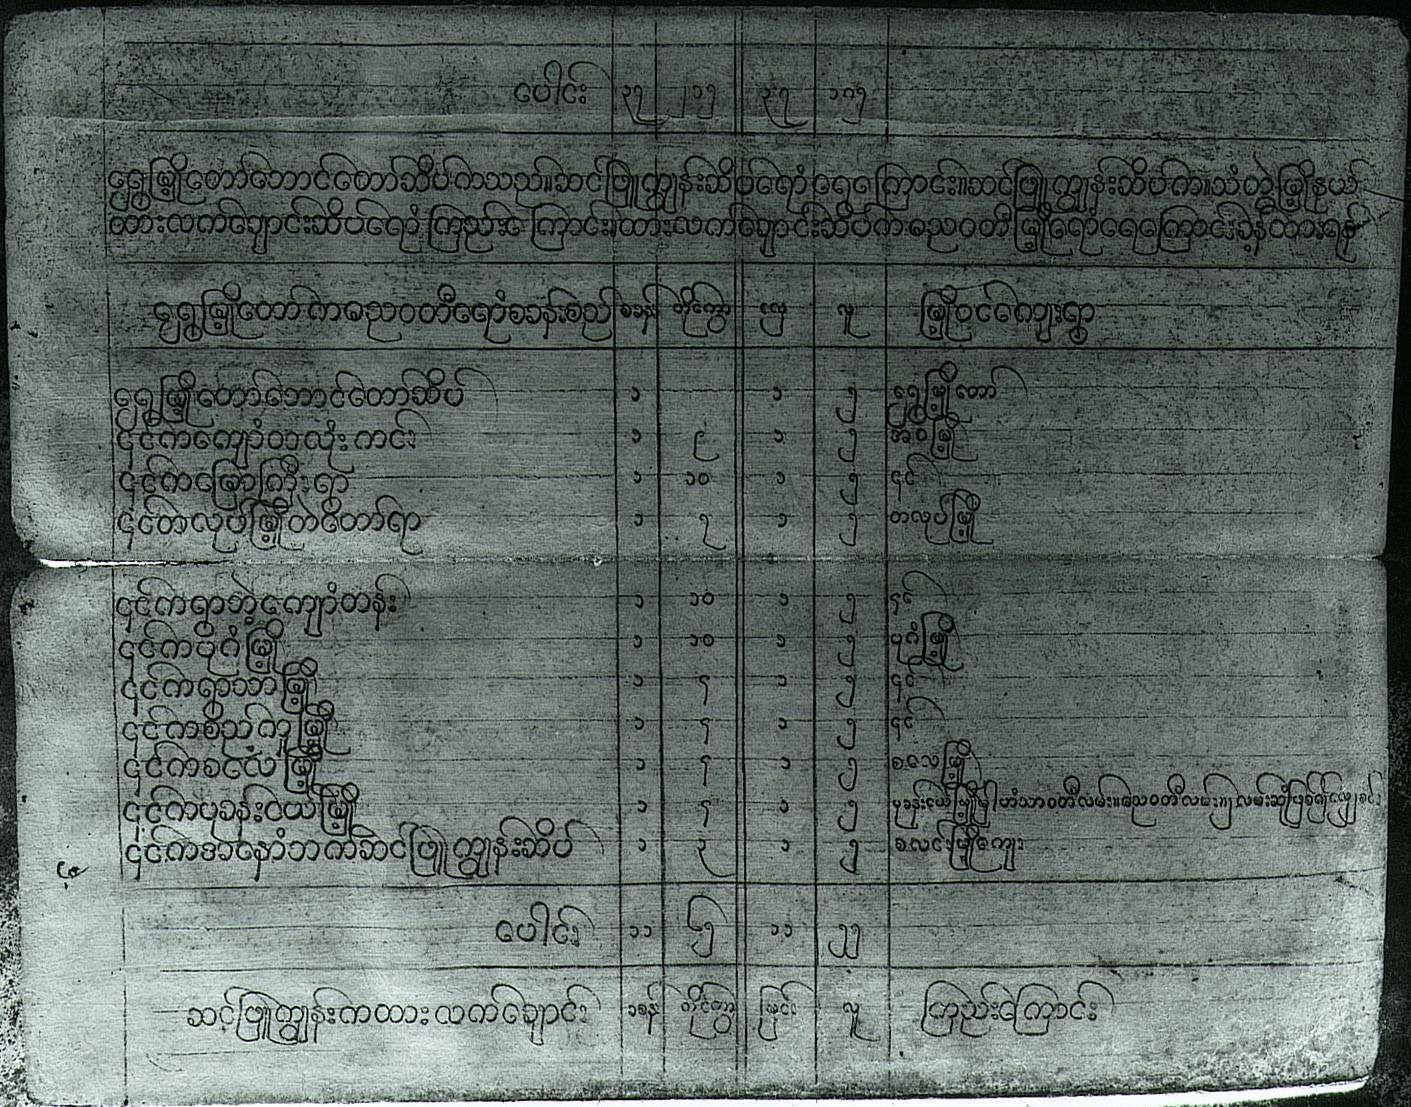 ပေါင်း ၃၇ ၂၁၅ ၃၇ ၁၈၅
ရွှေမြို့တော်ဘောင်တော်ဆိပ်ကသည်။ဆင်ဖြူကျွန်းဆိပ်ရောံရေကြောင်း။ဆင်ဖြူကျွန်းဆိပ်က။သံတွဲမြို့နယ်
ထားလက်ချောင်းဆိပ်ရောံကြည်းကြောင်း။ထားလက်ချောင်းဆိပ်ကဓညဝတီမြို့ရောံရေကြောင်းခဲ့နထားရန်
ရွှေမြို့တော်ကဓညဝတီရောံစခန်းစည် စခန်း တိုင်ကွာ လှေ လူ မြို့ဝင်ကျေးရွာ
ရွှေမြို့တော်ဘောင်တော်ဆိပ် ၁ ၁ ၅ ရွှေမြို့တော်
၎င်းကကျောံဝာလုံးကင်း ၁ ၉ ၁ ၅ အဝမြို့
၎င်းကမြောကြီးရာ ၁ ၁၀ ၁ ၅ ၎င်း
၎င်းတလုပ်မြို့တဲတော်ရာ ၁ ၇ ၁ ၅ တလုပ်မြို့
၎င်းကရွာဘွဲ့ကျောံတန်း ၁ ၁၀ ၁ ၅ ၎င်း
၎င်းကပုဂံမြို့ ၁ ၁၀ ၁ ၅ ပုဂံမြို့
၎င်းကရွာသာမြို့ ၁ ၅ ၁ ၅ ၎င်း
၎င်းကစည်ကူမြို့ ၁ ၅ ၁ ၅ ၎င်း
၎င်းကစလေမြို့ ၁ ၅ ၁ ၅ စလေမြို့
၎င်းကပုခန်းငယ်မြို့ ၁ ၅ ၁ ၅ ပုခန်းငယ်မြို့ ဟံသာဝတီလမ်း။ဓညဝတီလမ်း လမ်းဆုံဖြစ်၍
၎င်းကအနောံဘက်ဆင်ဖြူကျွန်းဆိပ် ၁ ၃ ၁ ၅ စလင်းမြို့ကျေး
ပေါင်း ၁၁ ၆၅ ၁၁ ၅၅
ဆင်ဖြူကျွန်းကထားလက်ချောင်း စခန်း တိုင်ကွာ မြင်း လူ ကြည်းကြောင်း